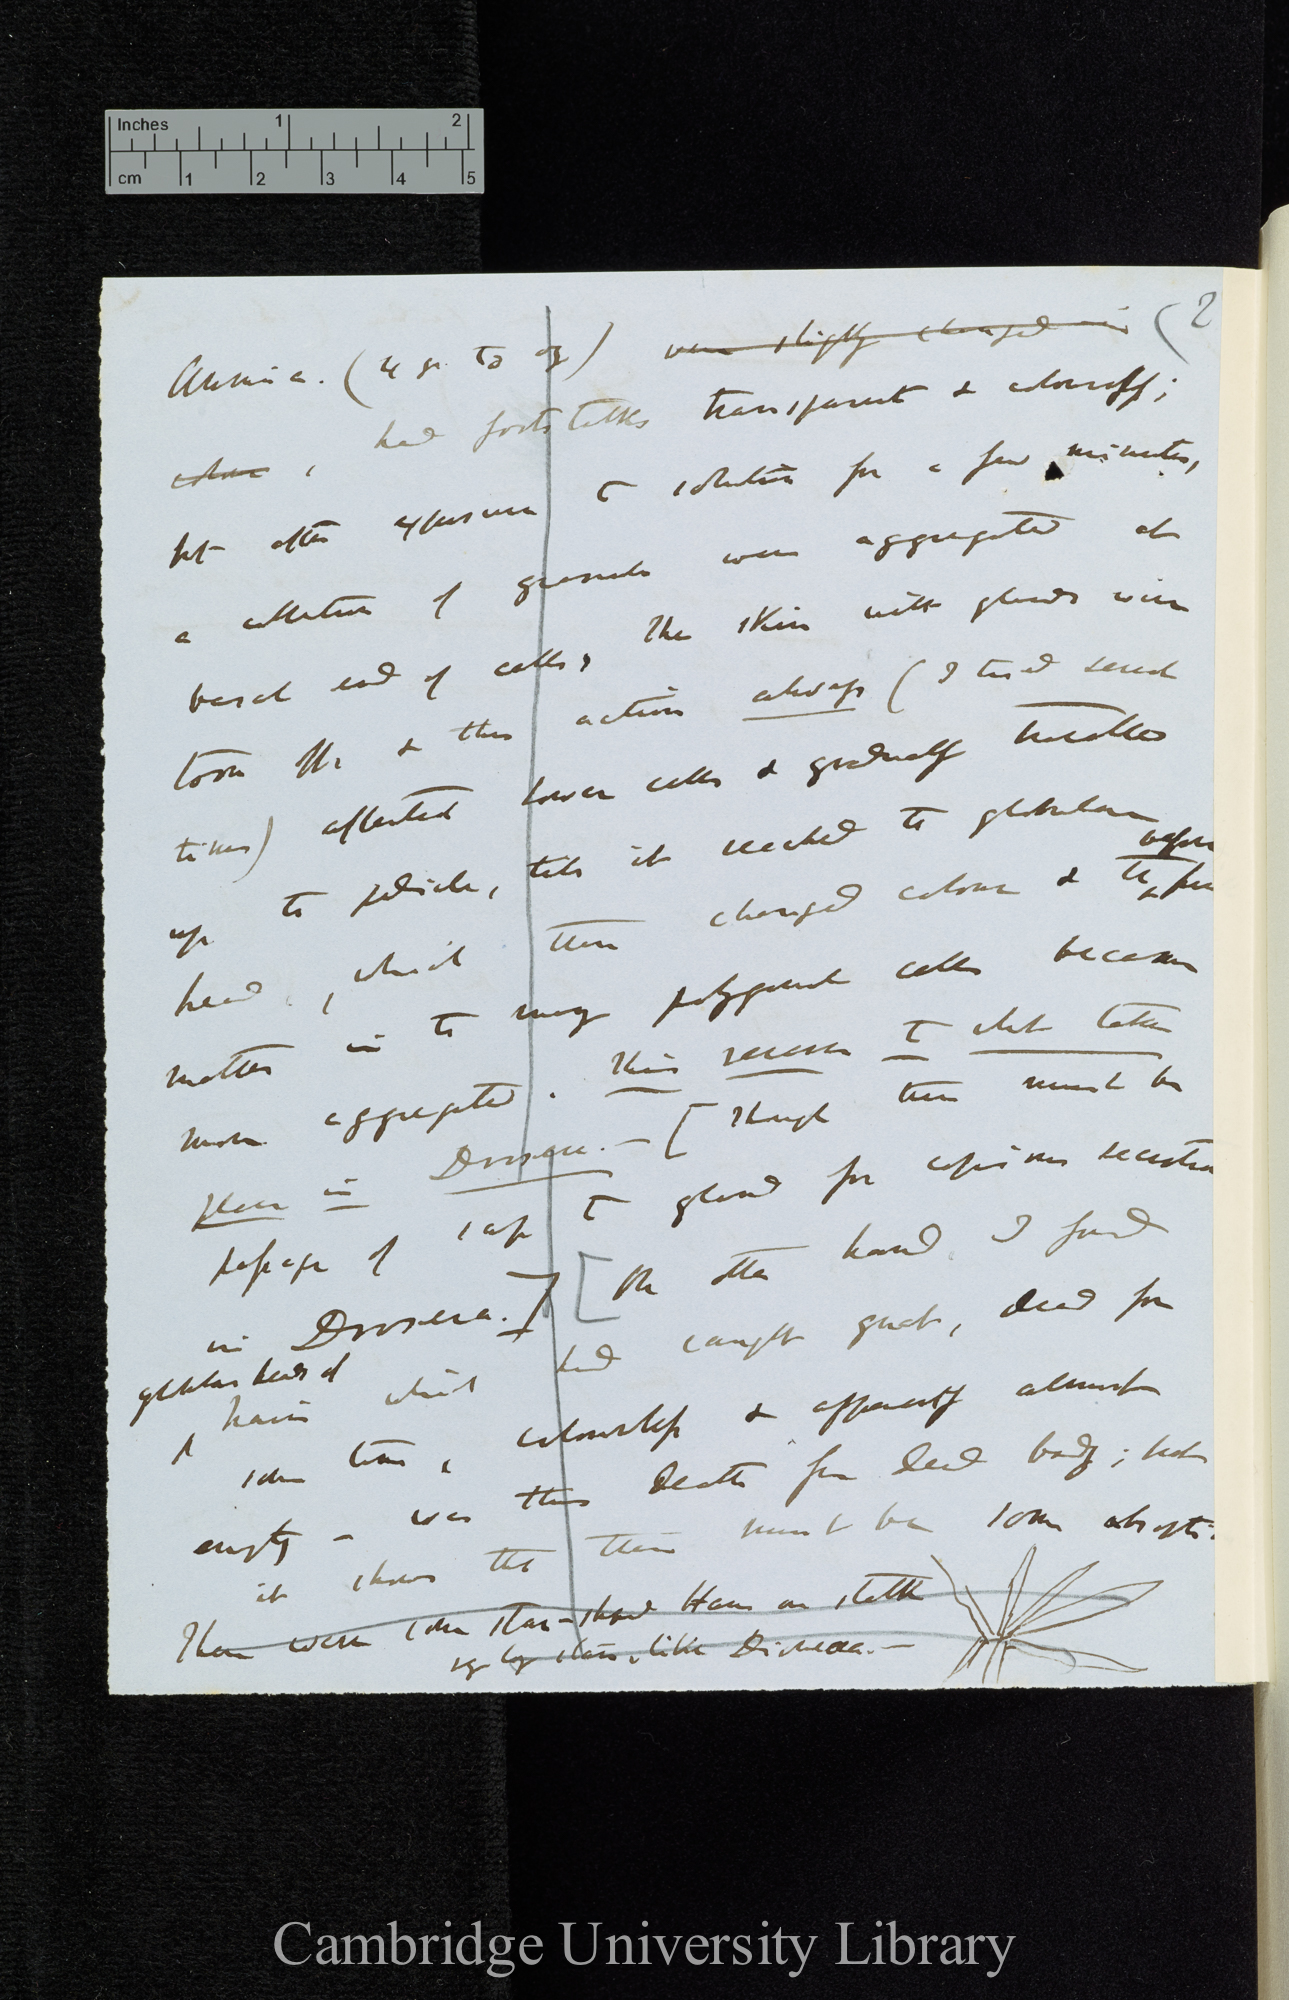 Inches 1 2
cm 1 2 3 4 5
(2
Ammonia. (4 gr. to oz) were slightly changed in
colour, had footstalks transparent & colourless;
but after exposure to solution for a few minutes,
a collection of granules were aggregated at
basal end of cells, The skin with glands were
torn off & this action always (I tried several
times) affected lower cells & gradually travelled
up to pedicle, till it reached to globular
head, which then changed colour & the before pure
matter in to many polygonal cells became
more aggregated. This reverse to what takes
place in Drosera. — [Though there must be
passage of sap to gland for copious secretion
in Drosera.] [On other hand I found
globular heads of
hairs which had caught gnat, dead for
some time, colourless & apparently almost
empty — was this death from dead body; but
it shows that there must be some absorption
There were some star-shaped Hairs on stalk
like Dionæa. —
Cambridge University Library